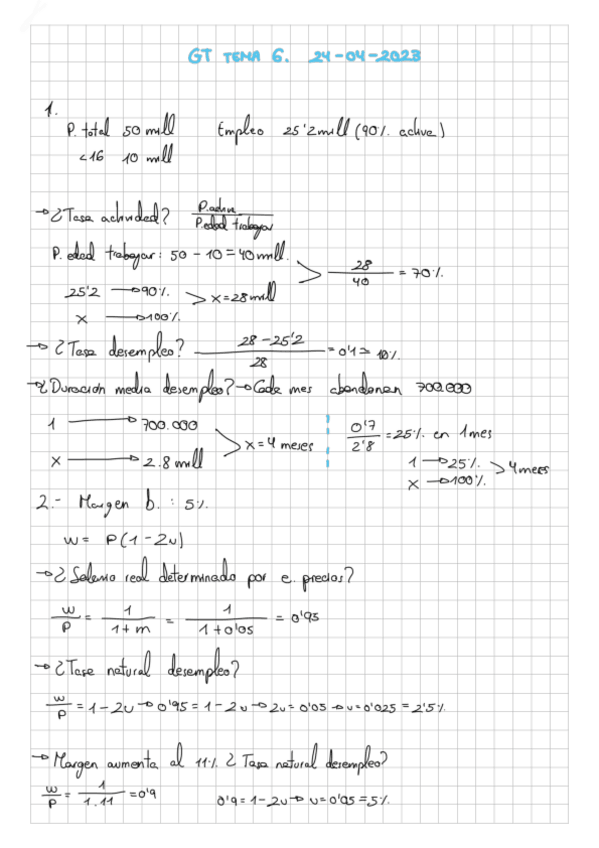 GT TEMA 6. 24-04-2023
1.
P. total 50 mill Empleo 25'2 mill (90% activa)
<16 10 mill
→ ¿Tasa actividad? P.activa / P.edad trabajar
P. edad trabajar: 50 - 10 = 40 mill. > 28/40 = 70%
25'2 → 90% > x = 28 mill
x → 100%
→ ¿Tasa desempleo? 28 - 25'2 / 28 = 0'1 = 10%
→ ¿Duración media desempleo? → Cada mes abandonan 700.000
1 → 700.000 > x = 4 meses 0'7/2'8 = 25% en 1 mes
x → 2.8 mill 1 → 25% > 4 meses
x → 100%
2.- Margen b. : 5%
w = P(1 - 2u)
→ ¿Salario real determinado por e. precios?
w/P = 1/1+m = 1/1+0'05 = 0'95
→ ¿Tasa natural desempleo?
w/P = 1 - 2u → 0'95 = 1 - 2u → 2u = 0'05 → u = 0'025 = 2'5%
→ Margen aumenta al 11% ¿Tasa natural desempleo?
w/P = 1/1.11 = 0'9 0'9 = 1 - 2u → u = 0'05 = 5%